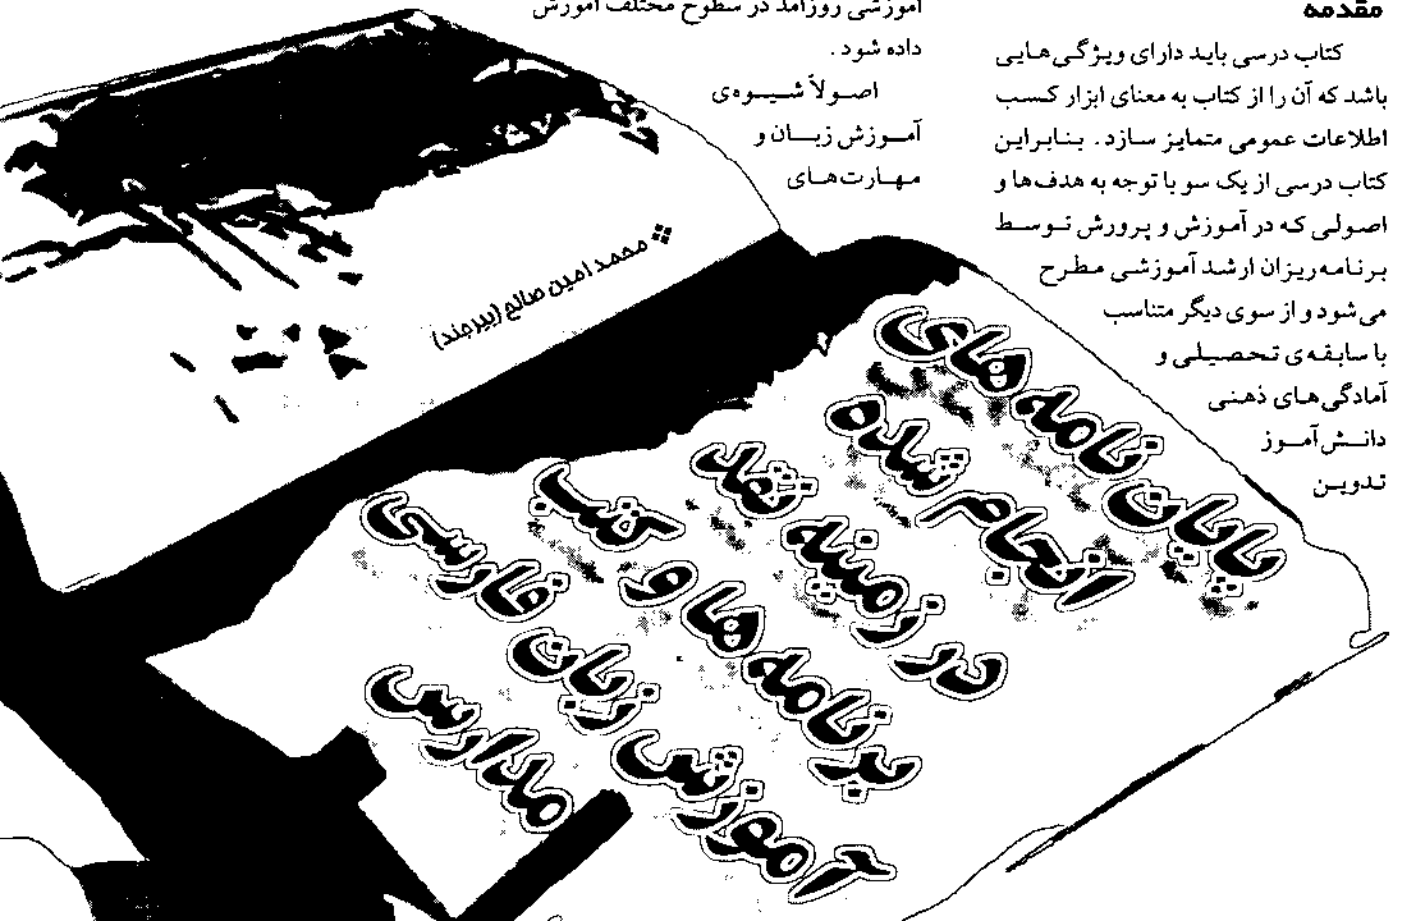 مقدمه
کتاب درسی باید دارای ویژگی‌هایی
باشد که آن را از کتاب به معنای ابزار کسب
اطلاعات عمومی متمایز سازد. بنابراین
کتاب درسی از یک سو با توجه به هدف‌ها و
اصولی که در آموزش و پرورش توسط
برنامه‌ریزان ارشد آموزشی مطرح
می‌شود و از سوی دیگر متناسب
با سابقه‌ی تحصیلی و
آمادگی‌های ذهنی
دانش‌آموز
تدوین
آموزشی روزآمد در سطوح مختلف آموزش
داده شود.
اصولاً شیوه‌ی
آموزش زبان و
مهارت‌های
محمد امین صالح (بیرجند)
پایان نامه های
انجام شده
در زمینه نقد
برنامه ها و کتب
آموزش زبان فارسی
مدارس